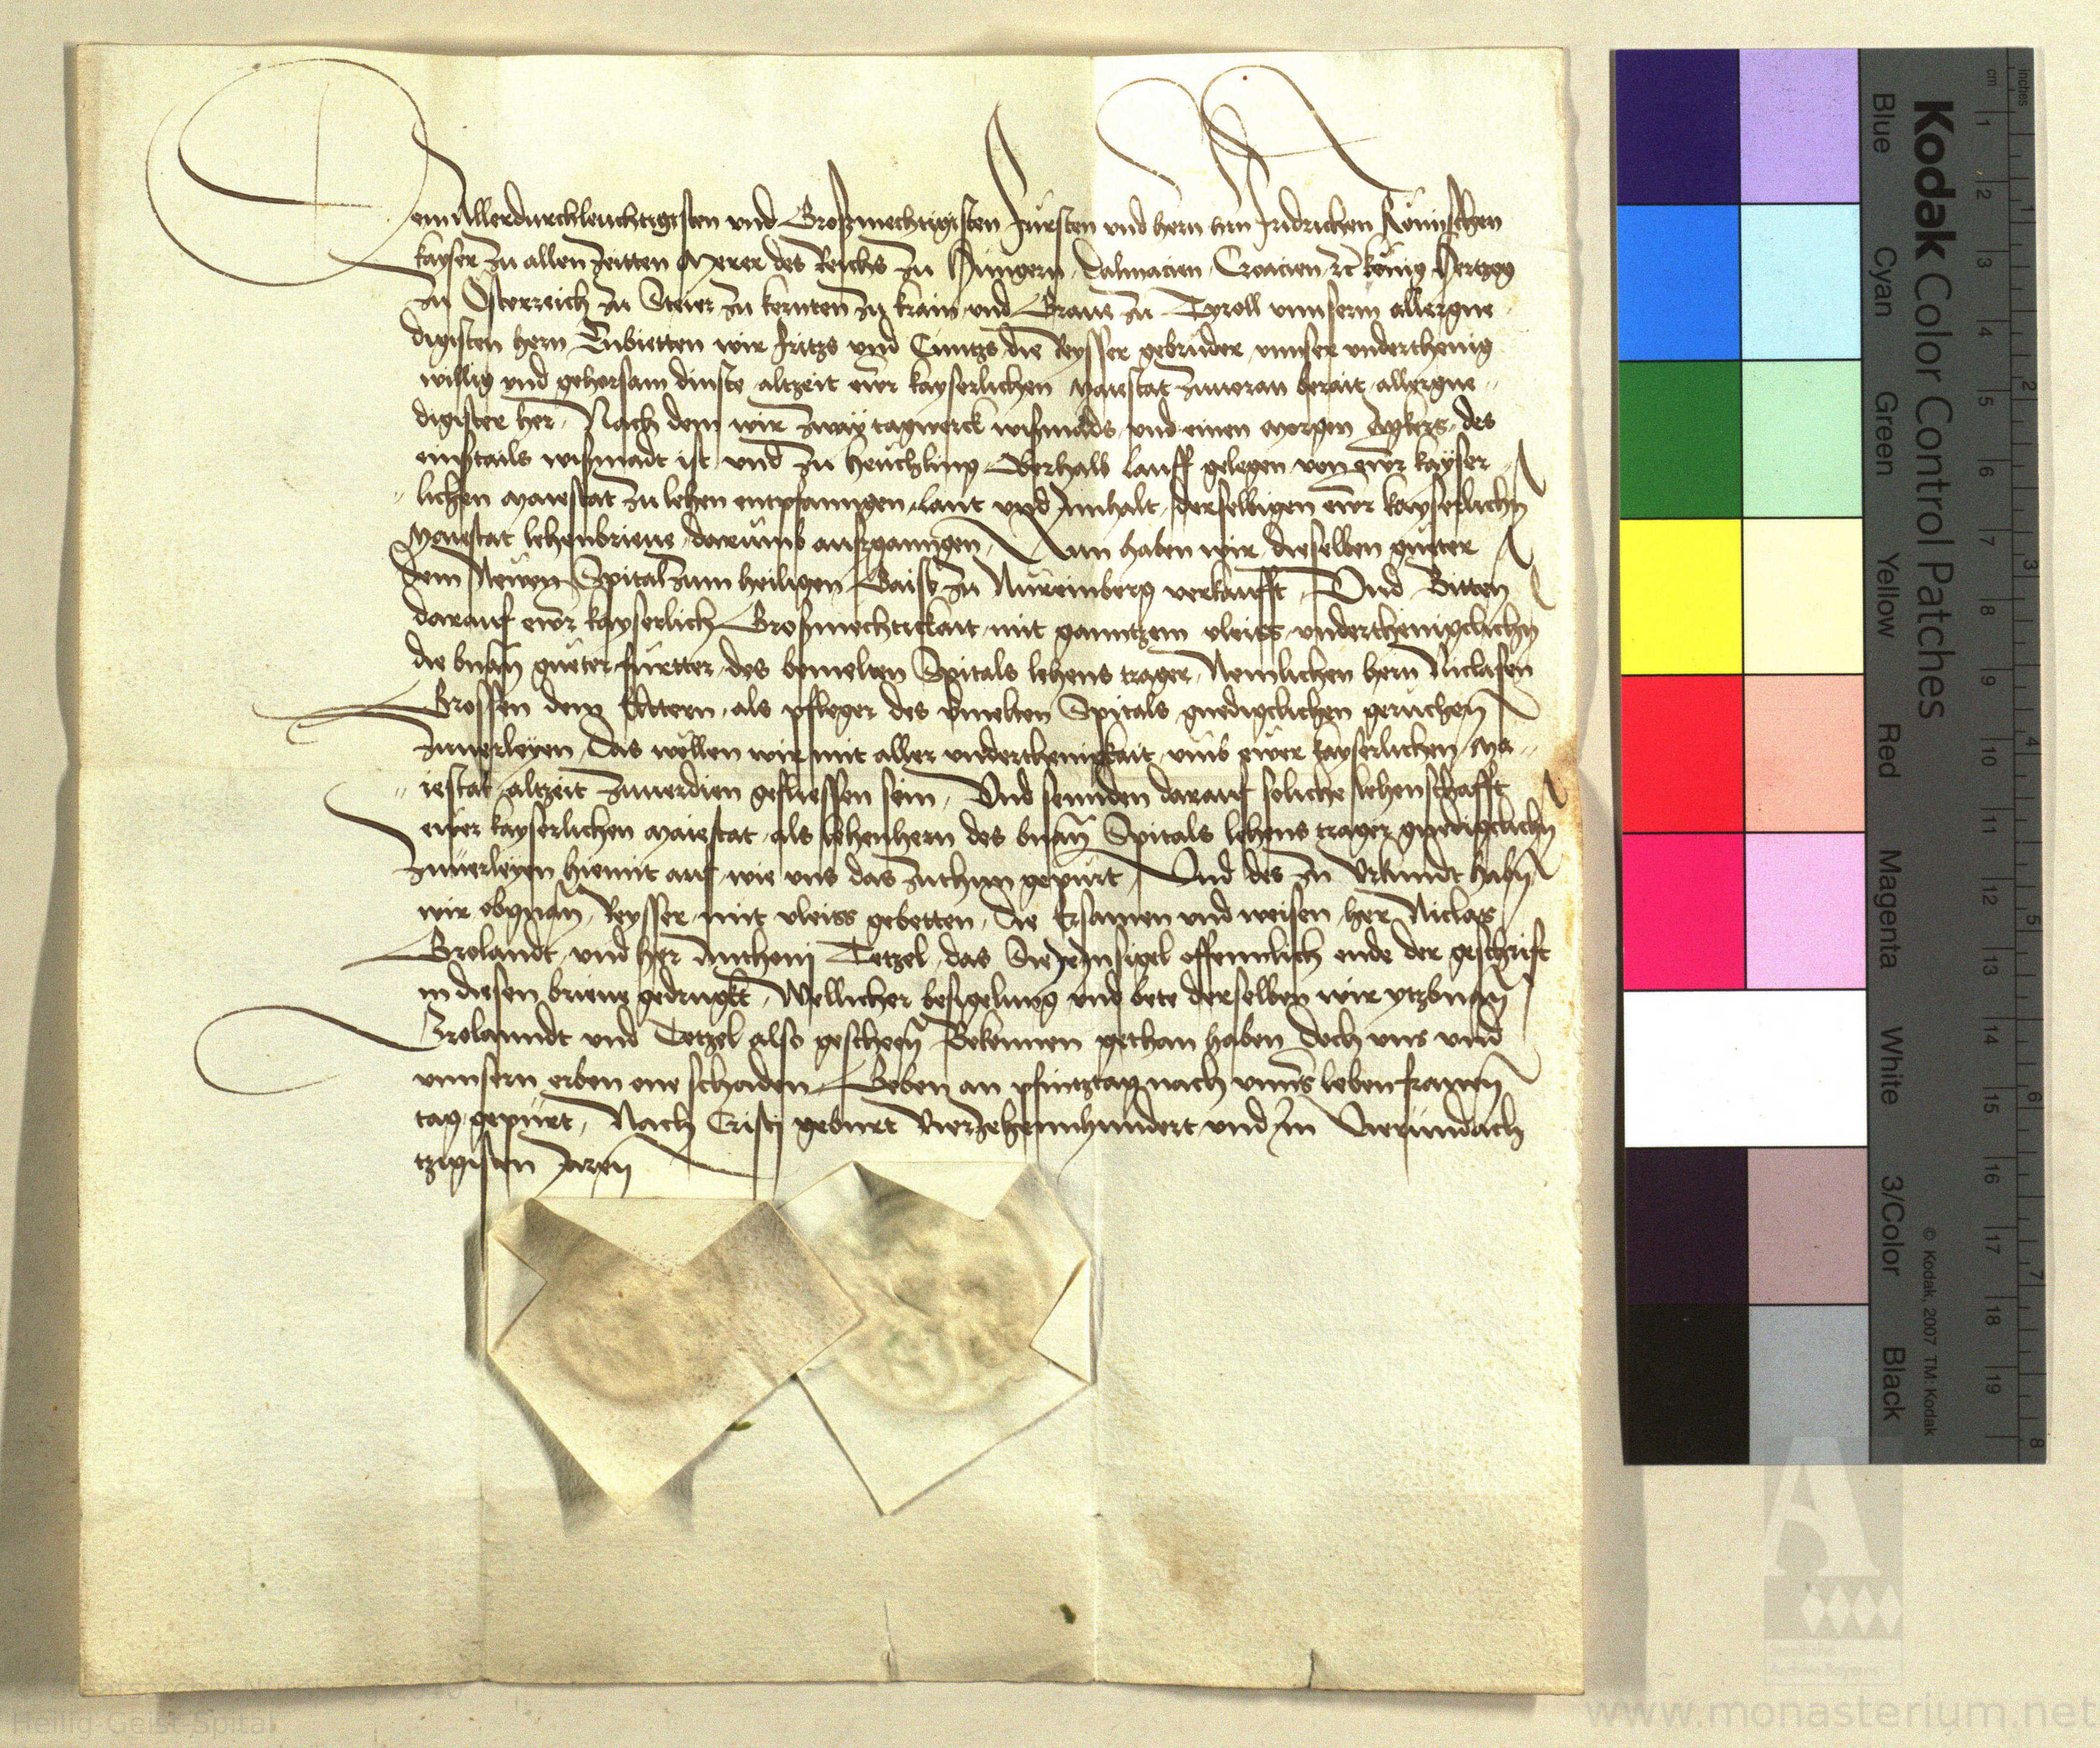 Dem Allerdurchleuchtigisten und Großmechtigisten Fürsten und hern hrn Fridrichen Römischen
kayser zu allen zeitten Merer des Reichs zu Hungern Dalmacien Croacien rc könig Hertzog
zu Osterreich zu Steier zu kernten zu krain und Graue zu Tyroll unnserm allergne
digisten hern Enbietten wir Fritzs und Cuntzs die Reysser gebruder unnser underthenig
willig und gehorsam dinste altzeit ewr kayserlichen Maiestat zuuoran berait allergne
digister her Nach dem wir zway tagwerck wißmads und einen morgen Ackers des
einstails wißmadt ist und zu heuchling Oberhalb Lauff gelegen von ewr kayser
lichen Maiestat zu lehen entpfanngen laut und Innhalt derselbigen ewr kayserlichn
Maiestat lehenbriene darumb aufzganngen Nun haben wir dieselben guter
dem Newen Spital zum heiligen Gaist zu Nureinberg verkaufft Und Bitten
darauf ewr kayserlich Großmechtickait mit ganntzem vleiss underthenigclichn
die bnan gueter furtter des bemelten Spitals lehens trager Nemlichen hern Niclasen
Grossen dem Eltern als pfleger des bemelten Spitals gnedigclichen geruchen
zuuerleyen Das wöllen wir mit aller underthenigkait umb ewer kayserlichen Ma
iestat altzeit zuuerdien gefliessen sein Und sennden darauf soliche lehenschafft
ewer kayserlichen Maiestat als lehenhern des bnan Spitals lehens trager gnedigclichn
zuuerleyen hiemit auf wie uns das zuthun gepurt Und des zu Urkundt habn
wir obgnan Reysser mit vleiss gebetten die Ersamen und weisen her Niclas
Grolandt und her Anthoni Tetzel das Sie Ire Insigel offennlich ende der geschrift
in diesen briene gedrugkt Wellicher besigelung und bete derselben wir ytzbnan
Grolanndt und Tetzel also gescheen Bekennen gethan haben doch uns und
unnsern erben one schaden Geben an pfintztag nach unns leben frauen
tag gepurt Nach Cristi geburt Vierzehennhundert und Im Vierundach
tzigisten Jaren
Kodak Color Control Patches
Blue Cyan Green Yellow Red Magenta White 3/Color Black
© Kodak, 2007 TM: Kodak
inches 1 2 3 4 5 6 7 8
cm 1 2 3 4 5 6 7 8 9 10 11 12 13 14 15 16 17 18 19
Heilig-Geist-Spital
www.monasterium.net